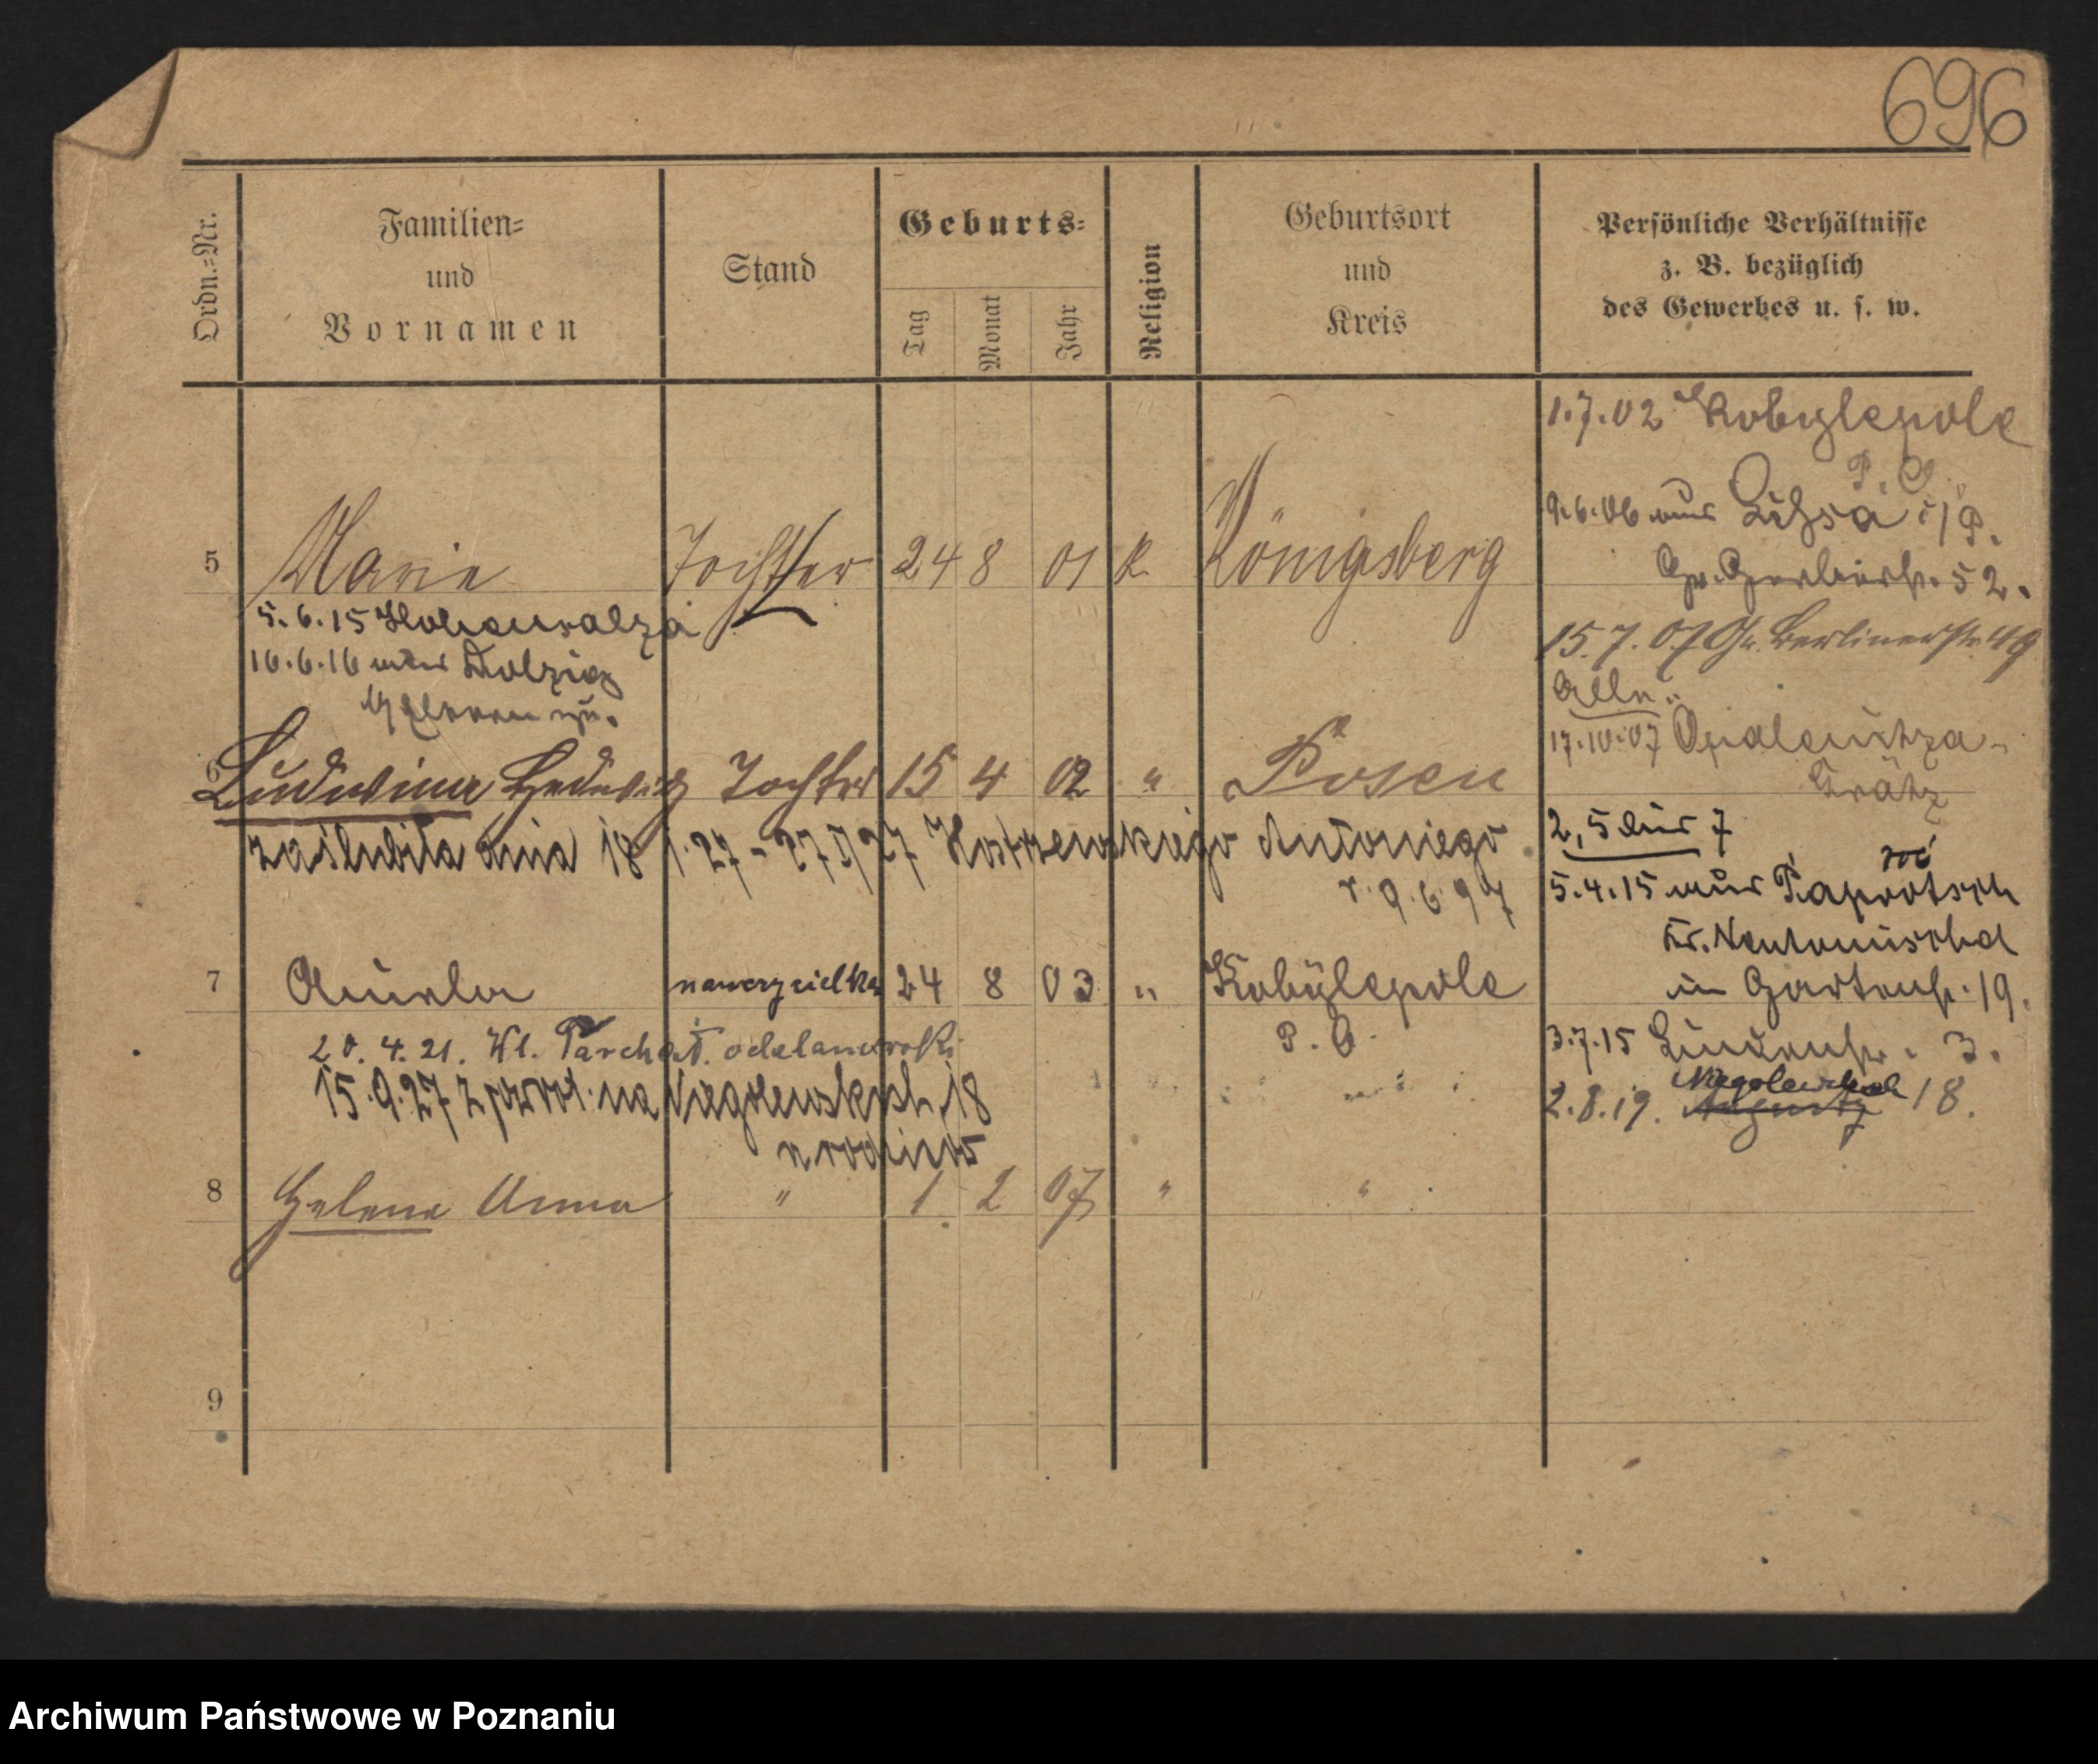 696
Ordn.=Nr.
Familien=
und
Vornamen
Stand
Geburts=
Tag
Monat
Jahr
Religion
Geburtsort
und
Kreis
Persönliche Verhältnisse
z. B. bezüglich
des Gewerbes u. s. w.
1.7.02 Kobylepole
P. O.
9.6.06 aus Lissa i/P.
Gr. Gerberstr. 52.
5 Marie Tochter 24 8 01 K. Königsberg
5.6.15 Hohensalza
16.6.16 aus Dolzig
15.7.07 Gr. Berlinerstr. 49
17.10.07 Opalenitza
Grätz
6 Ludwina Hedwig Tochter 15 4 02 " Posen
zaślubiła dnia 18 1.27 - 27 Kostrzewskiego Antoniego
r. 9.6.97
2, 5 und 7
5.4.15 aus Paprotsch
Kr. Neutomischel
in Gartenstr. 19.
7 nauczycielka 24 8 03 " Kobylepole
P. O.
20.4.21. Wl. Parchat. odelanowski
15.9.27 z powrot. na Niegolewskich 18
u rodziców
3.7.15 Lindenstr. 3.
2.8.19. Niegolewskich 18.
8 Helene Anna " 1 2 07 " "
9
Archiwum Państwowe w Poznaniu